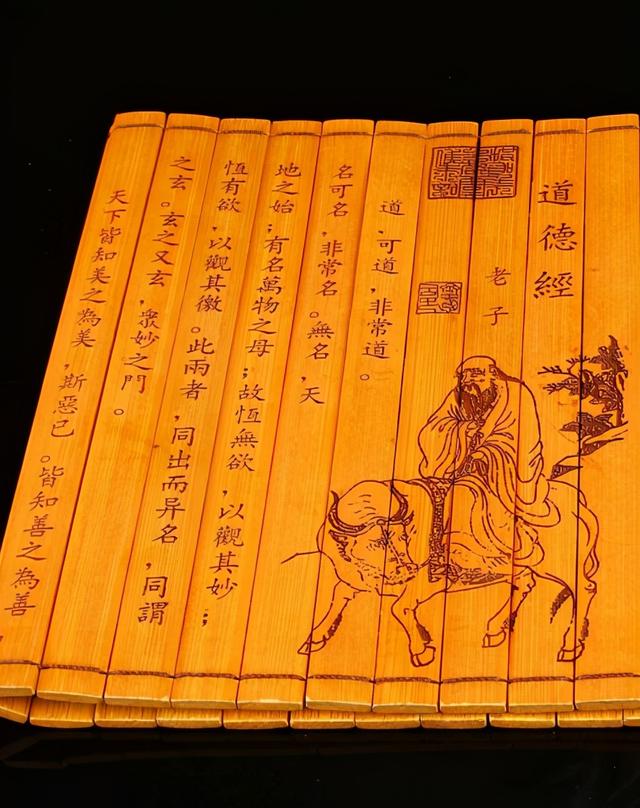 道德經
老子
道,可道,非常道。
名可名,非常名。無名,天
地之始;有名萬物之母;故恆無欲,以觀其妙;
恆有欲,以觀其徼。此兩者,同出而异名,同謂
之玄。玄之又玄,衆妙之門。
天下皆知美之為美,斯惡已。皆知善之為善,